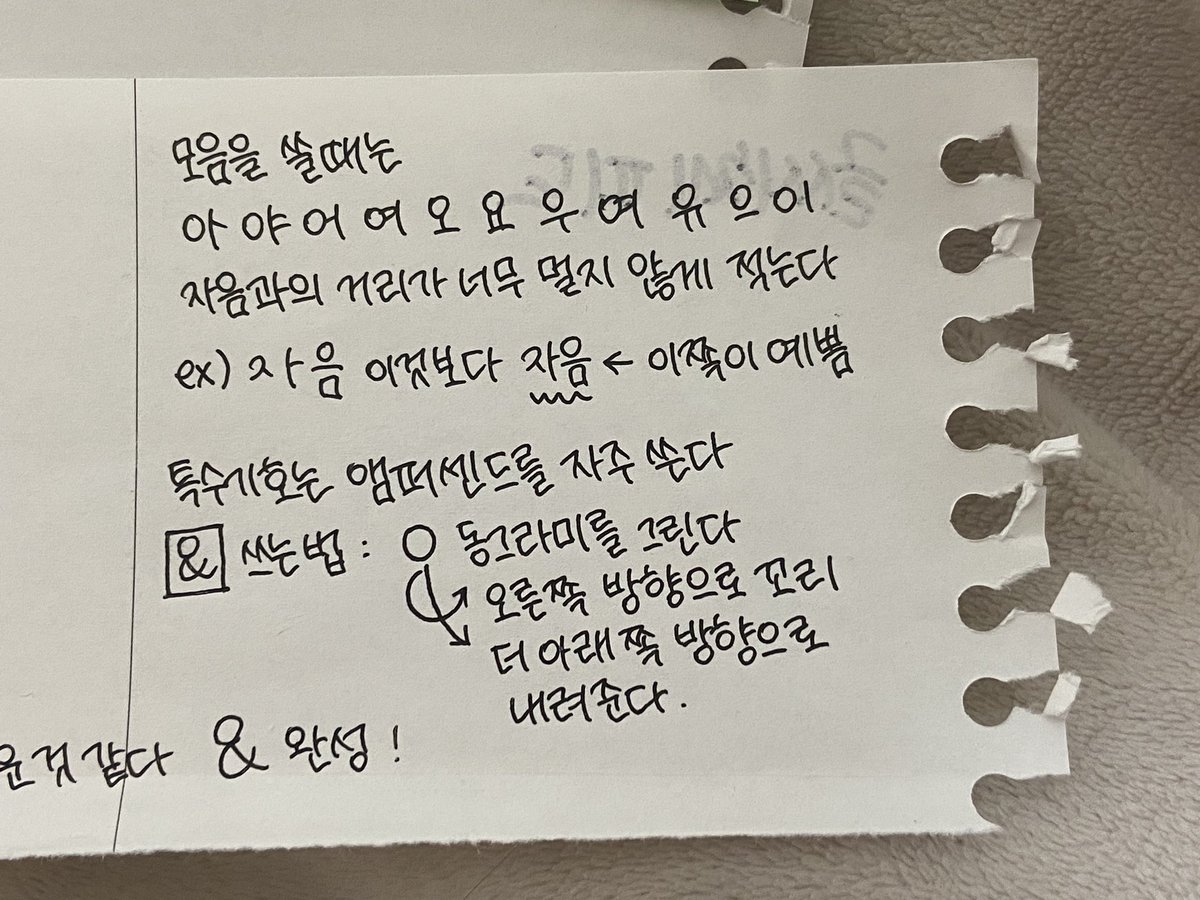 모음을 쓸때는
아 야 어 여 오 요 우 여 유 으 이
자음과의 거리가 너무 멀지 않게 적는다
ex) 자 음 이것보다 자음 ← 이쪽이 예쁨
특수기호는 앰퍼센드를 자주 쓴다
& 쓰는법 : O 동그라미를 그린다
오른쪽 방향으로 꼬리
더 아래쪽 방향으로
내려준다.
운것같다 & 완성!